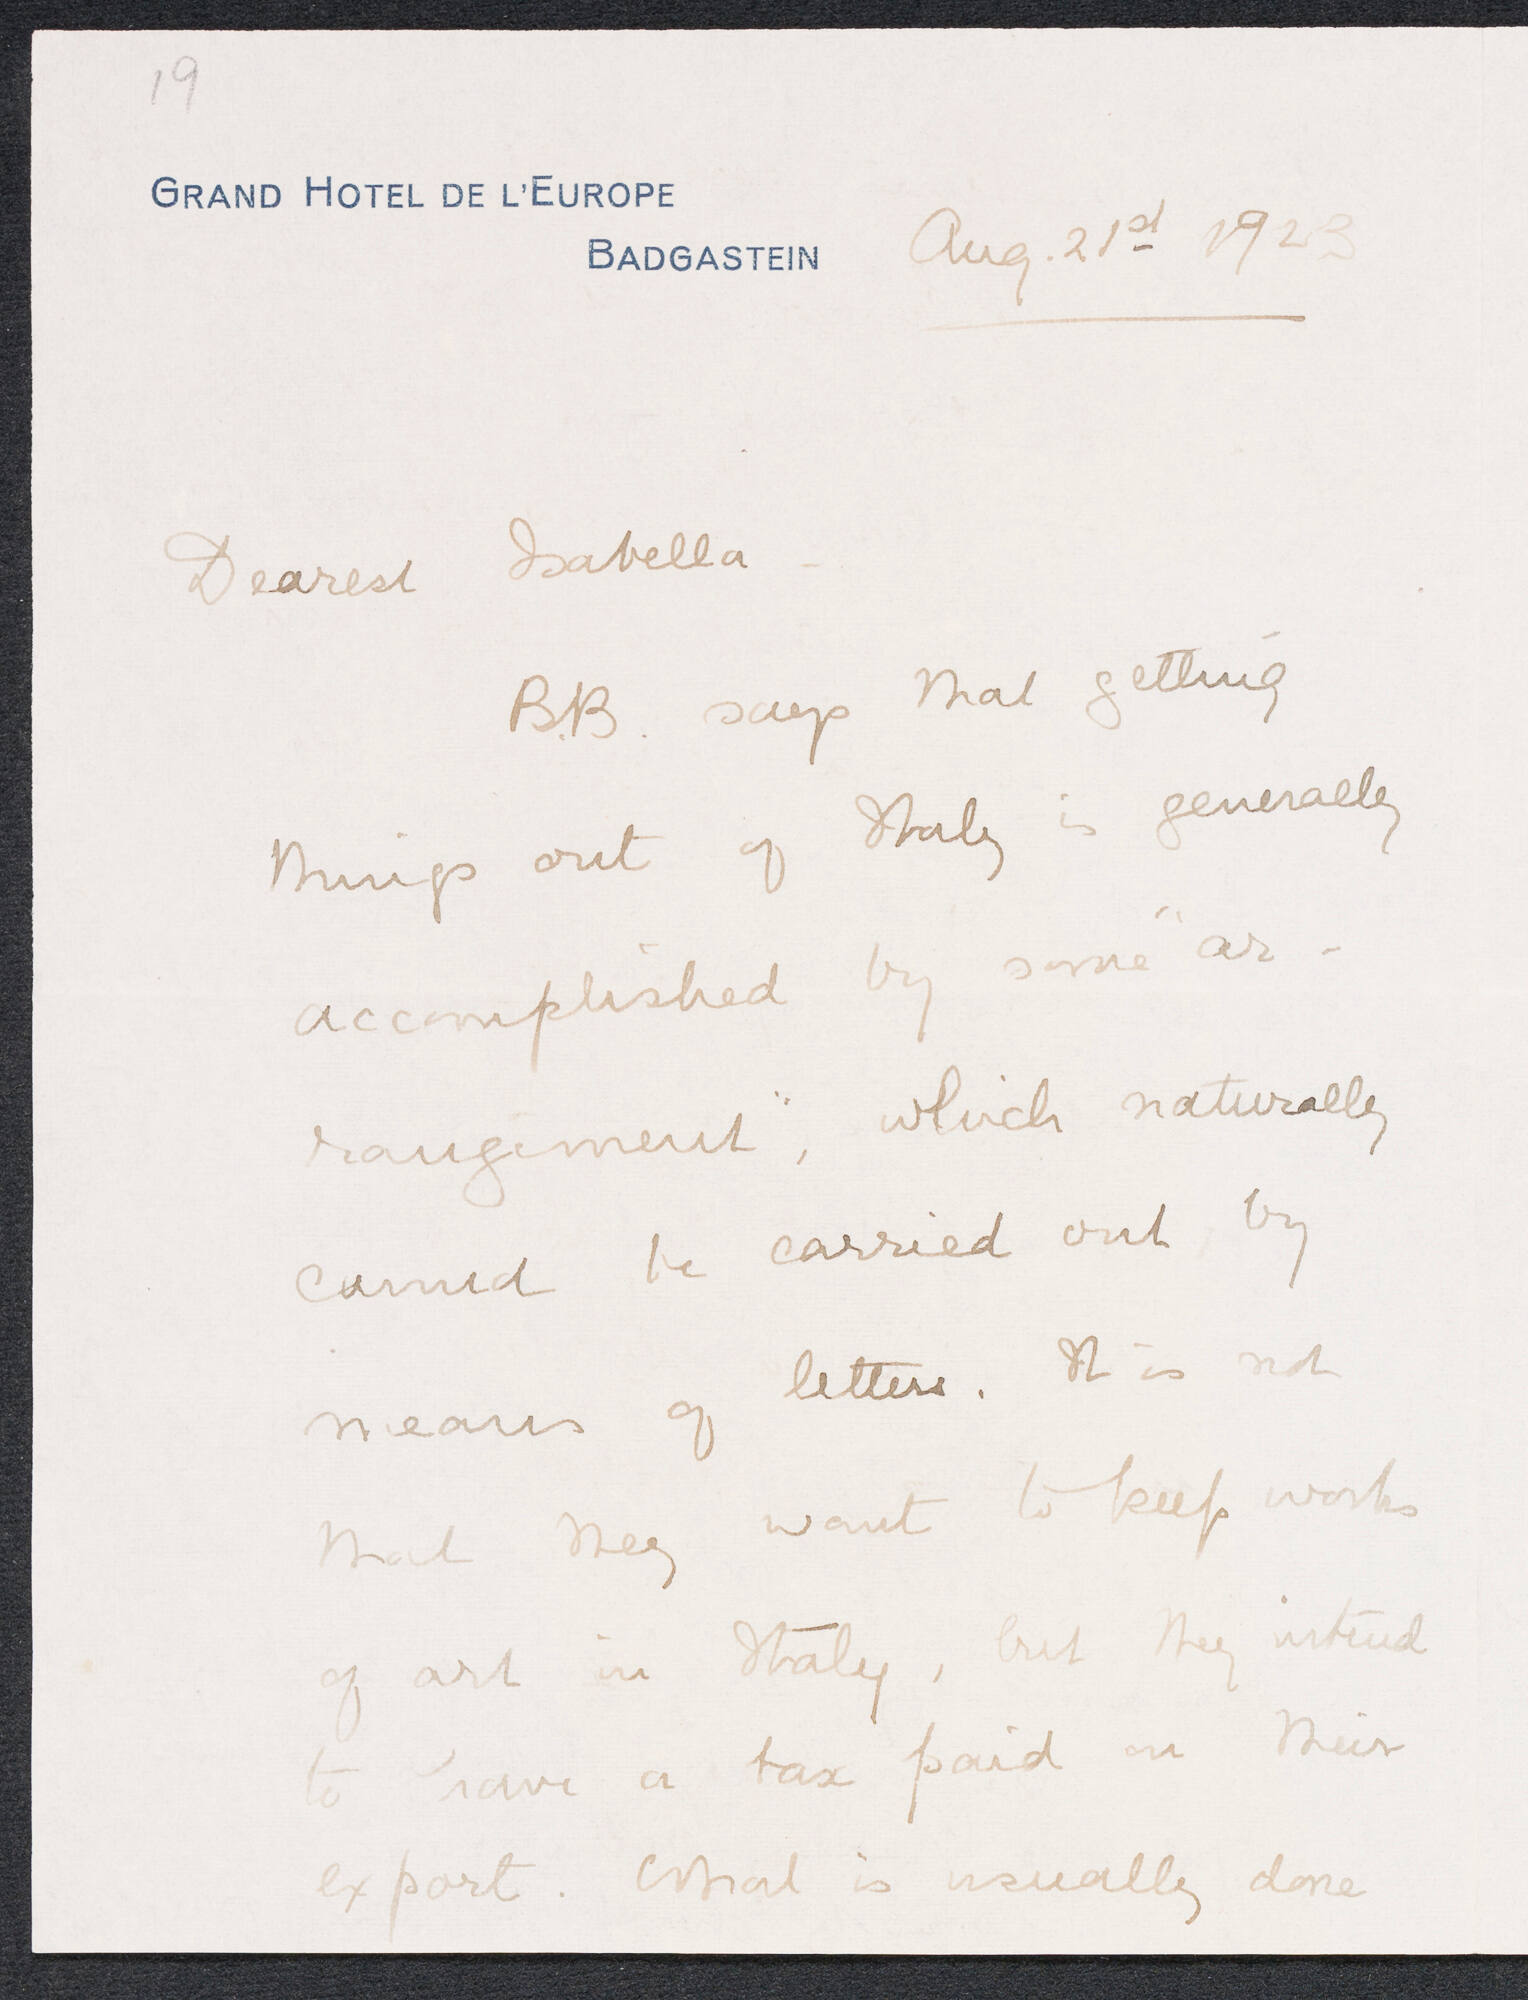 19
GRAND HOTEL DE L'EUROPE
BADGASTEIN
Aug. 21st 1923
Dearest Isabella -
B.B. says that getting
things out of Italy is generally
accomplished by some "ar-
rangement", which naturally
cannot be carried out by
means of letters. It is not
that they want to keep works
of art in Italy, but they intend
to have a tax paid on their
export. What is usually done